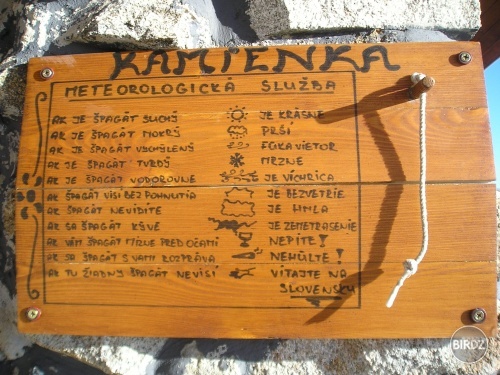 KAMIENKA
METEOROLOGICKÁ SLUŽBA
AK JE ŠPAGÁT SUCHÝ JE KRÁSNE
AK JE ŠPAGÁT MOKRÝ PRŠÍ
AK JE ŠPAGÁT VYCHÝLENÝ FÚKA VIETOR
AK JE ŠPAGÁT TVRDÝ MRZNE
AK JE ŠPAGÁT VODOROVNE JE VÍCHRICA
AK ŠPAGÁT VISÍ BEZ POHNUTIA JE BEZVETRIE
AK ŠPAGÁT NEVIDÍTE JE HMLA
AK SA ŠPAGÁT KÝVE JE ZEMETRASENIE
AK VÁM ŠPAGÁT MIZNE PRED OČAMI NEPITE!
AK SA ŠPAGÁT S VAMI ROZPRÁVA NEHÚLTE!
AK TU ŽIADNY ŠPAGÁT NEVISÍ VÍTAJTE NA
SLOVENSKU
BIRDZ